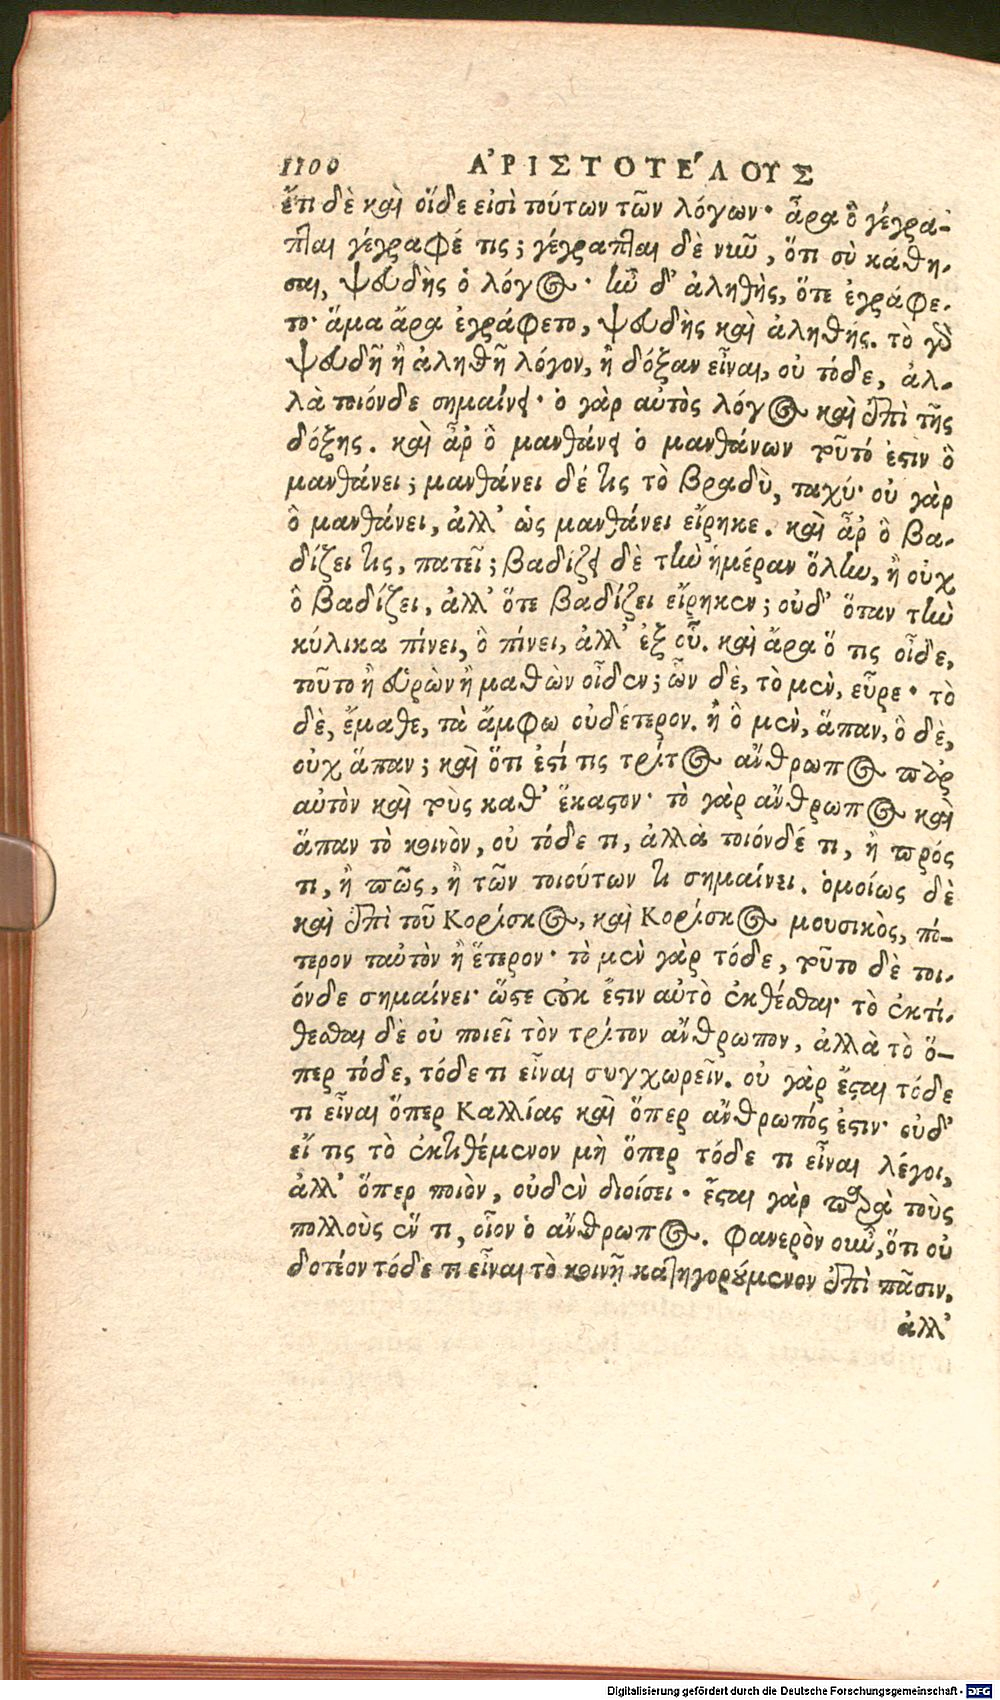 1700 ἈΡΙΣΤΟΤΈΛΟΥΣ
ἔτι δὲ καὶ οἵδε εἰσὶ τούτων τῶν λόγων· ἆρα ὃ γέγρα-
πται γέγραφέ τις; γέγραπται δὲ νῦν, ὅτι σὺ κάθη-
σαι, ψευδὴς ὁ λόγος· ἦν δ' ἀληθὴς, ὅτε ἐγράφε-
το· ἅμα ἄρα ἐγράφετο, ψευδὴς καὶ ἀληθής. τὸ γὰρ
ψευδῆ ἢ ἀληθῆ λόγον, ἢ δόξαν εἶναι, οὐ τόδε, ἀλ-
λὰ τοιόνδε σημαίνει· ὁ γὰρ αὐτὸς λόγος καὶ ἐπὶ τῆς
δόξης. καὶ ἆρ' ὃ μανθάνει ὁ μανθάνων τοῦτό ἐστιν ὃ
μανθάνει; μανθάνει δέ τις τὸ βραδὺ, ταχύ· οὐ γὰρ
ὃ μανθάνει, ἀλλ' ὡς μανθάνει εἴρηκε. καὶ ἆρ' ὃ βα-
δίζει τις, πατεῖ; βαδίζει δὲ τὴν ἡμέραν ὅλην, ἢ οὐχ
ὃ βαδίζει, ἀλλ' ὅτε βαδίζει εἴρηκεν; οὐδ' ὅταν τὴν
κύλικα πίνει, ὃ πίνει, ἀλλ' ἐξ οὗ. καὶ ἄρα ὅ τις οἶδε,
τοῦτο ἢ εὑρὼν ἢ μαθὼν οἶδεν; ὧν δὲ, τὸ μὲν, εὗρε· τὸ
δὲ, ἔμαθε, τὰ ἄμφω οὐδέτερον. ἢ ὃ μὲν, ἅπαν, ὃ δὲ,
οὐχ ἅπαν; καὶ ὅτι ἐστί τις τρίτος ἄνθρωπος παρ'
αὐτὸν καὶ τοὺς καθ' ἕκαστον· τὸ γὰρ ἄνθρωπος καὶ
ἅπαν τὸ κοινὸν, οὐ τόδε τι, ἀλλὰ τοιόνδέ τι, ἢ πρός
τι, ἢ πῶς, ἢ τῶν τοιούτων τι σημαίνει. ὁμοίως δὲ
καὶ ἐπὶ τοῦ Κορίσκος, καὶ Κορίσκος μουσικὸς, πό-
τερον ταὐτὸν ἢ ἕτερον· τὸ μὲν γὰρ τόδε, τοῦτο δὲ τοι-
όνδε σημαίνει· ὥστε οὐκ ἔστιν αὐτὸ ἐκθέσθαι· τὸ ἐκτί-
θεσθαι δὲ οὐ ποιεῖ τὸν τρίτον ἄνθρωπον, ἀλλὰ τὸ ὅ-
περ τόδε, τόδε τι εἶναι συγχωρεῖν. οὐ γὰρ ἔσται τόδε
τι εἶναι ὅπερ Καλλίας καὶ ὅπερ ἄνθρωπός ἐστιν· οὐδ'
εἴ τις τὸ ἐκτιθέμενον μὴ ὅπερ τόδε τι εἶναι λέγοι,
ἀλλ' ὅπερ ποιὸν, οὐδὲν διοίσει· ἔσται γὰρ παρὰ τοὺς
πολλοὺς ἕν τι, οἷον ὁ ἄνθρωπος. Φανερὸν οὖν, ὅτι οὐ
δοτέον τόδε τι εἶναι τὸ κοινῇ κατηγορούμενον ἐπὶ πᾶσιν,
ἀλλ'
Digitalisierung gefördert durch die Deutsche Forschungsgemeinschaft - DFG